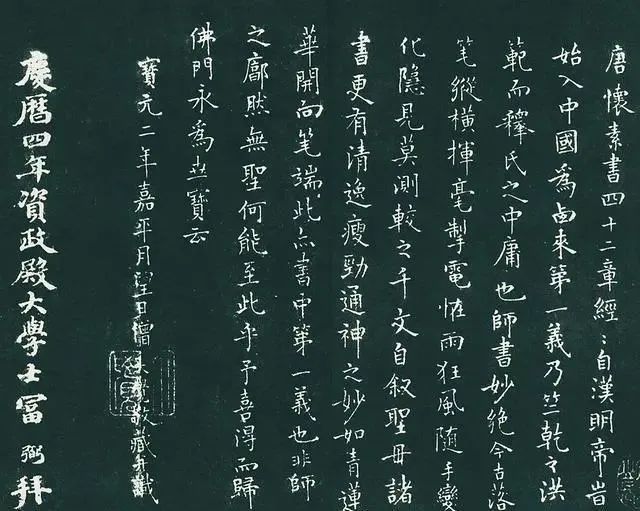 唐懷素書四十二章經〻自漢明帝峕
始入中國為西來第一義乃竺乾之洪
範而釋氏之中庸也師書妙絕今古落
笔縱橫揮毫掣電恠雨狂風隨手變
化隱見莫測較之千文自叙聖母諸
書更有清逸瘦勁通神之妙如青蓮
華開向笔端此亦書中第一義也非師
之廓然無聖何能至此乎予喜得而歸
佛門永為世寶云
寶元二年嘉平月望日儒敬藏并識
慶曆四年資政殿大學士冨弼拜